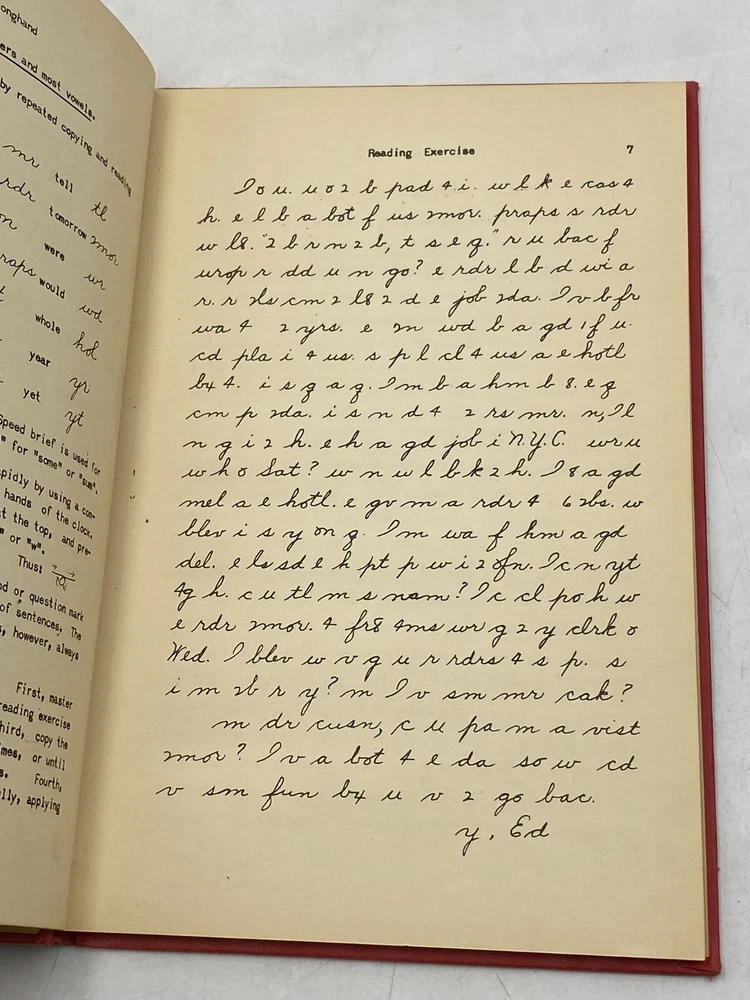 onghand
ers and most vowels.
by repeated copying and reading
mr tell tl
rdr tomorrow 2mor
were wr
raps would wd
whole hol
year yr
yet yt
Speed brief is used for
" for "some" or "sum".
rapidly by using a con-
hands of the clock.
t the top, and pre-
" or "w".
Thus:
od or question mark
of sentences. The
s, however, always
First, master
reading exercise
Third, copy the
imes, or until
s. Fourth,
lly, applying
Reading Exercise 7
I o u. u o 2 b pad 4 i. w l k e cas 4
h. e l b a bot f us 2mor. praps s rdr
w l8. "2 b r n 2 b, t s e q." r u bac f
urop r dd u n go? e rdr l b d wi a
r. r 2ls cm 2 l8 2 d e job 2da. I v b fr
wa 4 2 yrs. e m wd b a gd 1 f u.
cd pla i 4 us. s p l cl 4 us a e hotl
b4 4. i s g a g. I m b a hm b 8. e g
cm p 2da. i s n d 4 2 rs mr. n, I l
n g i 2 h. e h a gd job i N.Y.C. wr u
w h o Sat? w n w l b k 2 h. I 8 a gd
mel a e hotl. e gv m a rdr 4 6 2bs. w
blev i s y on g. I m wa f hm a gd
del. e ls sd e h pt p w i 2 ofn. I c n yt
4g h. c u tl m s nam? I c cl p o h w
e rdr 2mor. 4 fr8 4ms wr g 2 y clrk o
Wed. I blev w v g u r rdrs 4 s p. s
i m 2b r y? m I v sm mr cak?
m dr cusn, c u pa m a vist
2mor? I v a bot 4 e da so w cd
v sm fun b4 u v 2 go bac.
y, Ed